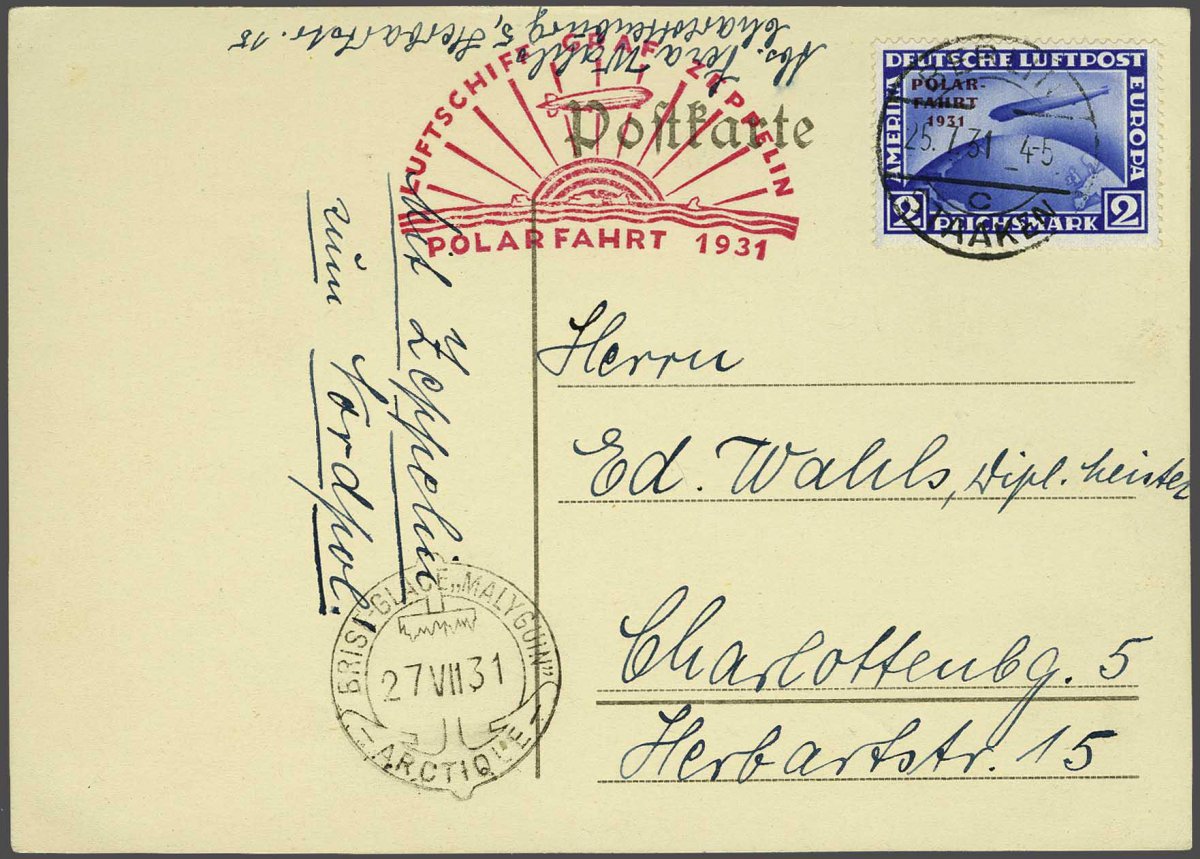 Abs. Vera Wahls
Charlottenburg 5, Herbartstr. 15
LUFTSCHIFF GRAF ZEPPELIN
POLARFAHRT 1931
Postkarte
DEUTSCHE LUFTPOST
AMERIKA
EUROPA
POLAR-
FAHRT
1931
2 REICHSMARK 2
BERLIN
25.7.31 4-5
C
STAAKEN
Mit Zeppelin
zum Nordpol.
Herrn
Ed. Wahls, Dipl.
Charlottenbg. 5
Herbartstr. 15
BRISE-GLACE „MALYGUIN”
27 VII 31
ARCTIQUE